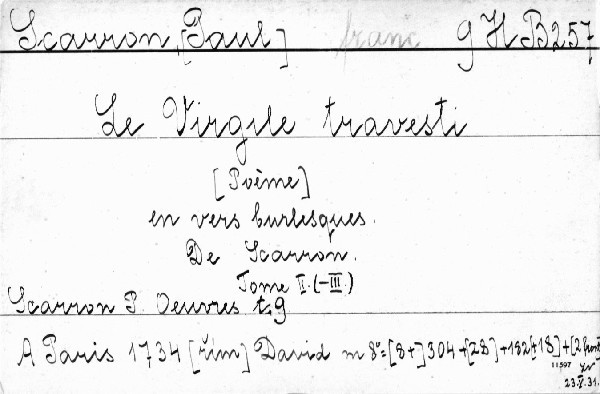 Scarron, [Paul] franc 9 H B 257
Le Virgile travesti
[Poème]
en vers burlesques.
De Scarron.
Tome II. (-III.)
Scarron P. Oeuvres t. 9
A Paris 1734 [řím] David m 8°=[8+]304+[28]+182[+18]+[2 front]
11597
23.V.31.